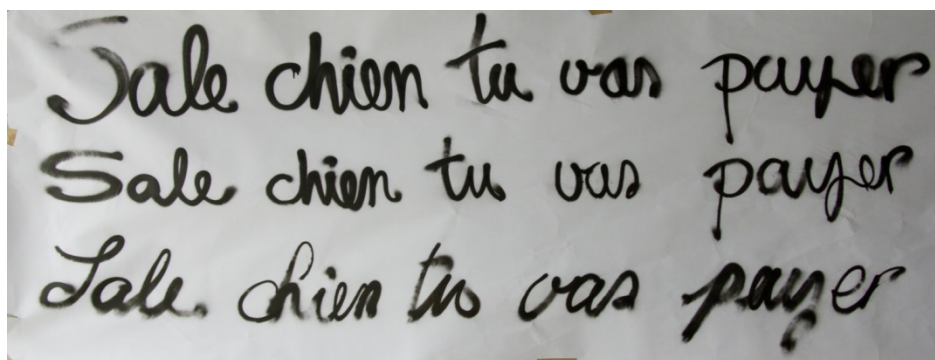 Sale chien tu vas payer
Sale chien tu vas payer
Sale chien tu vas payer